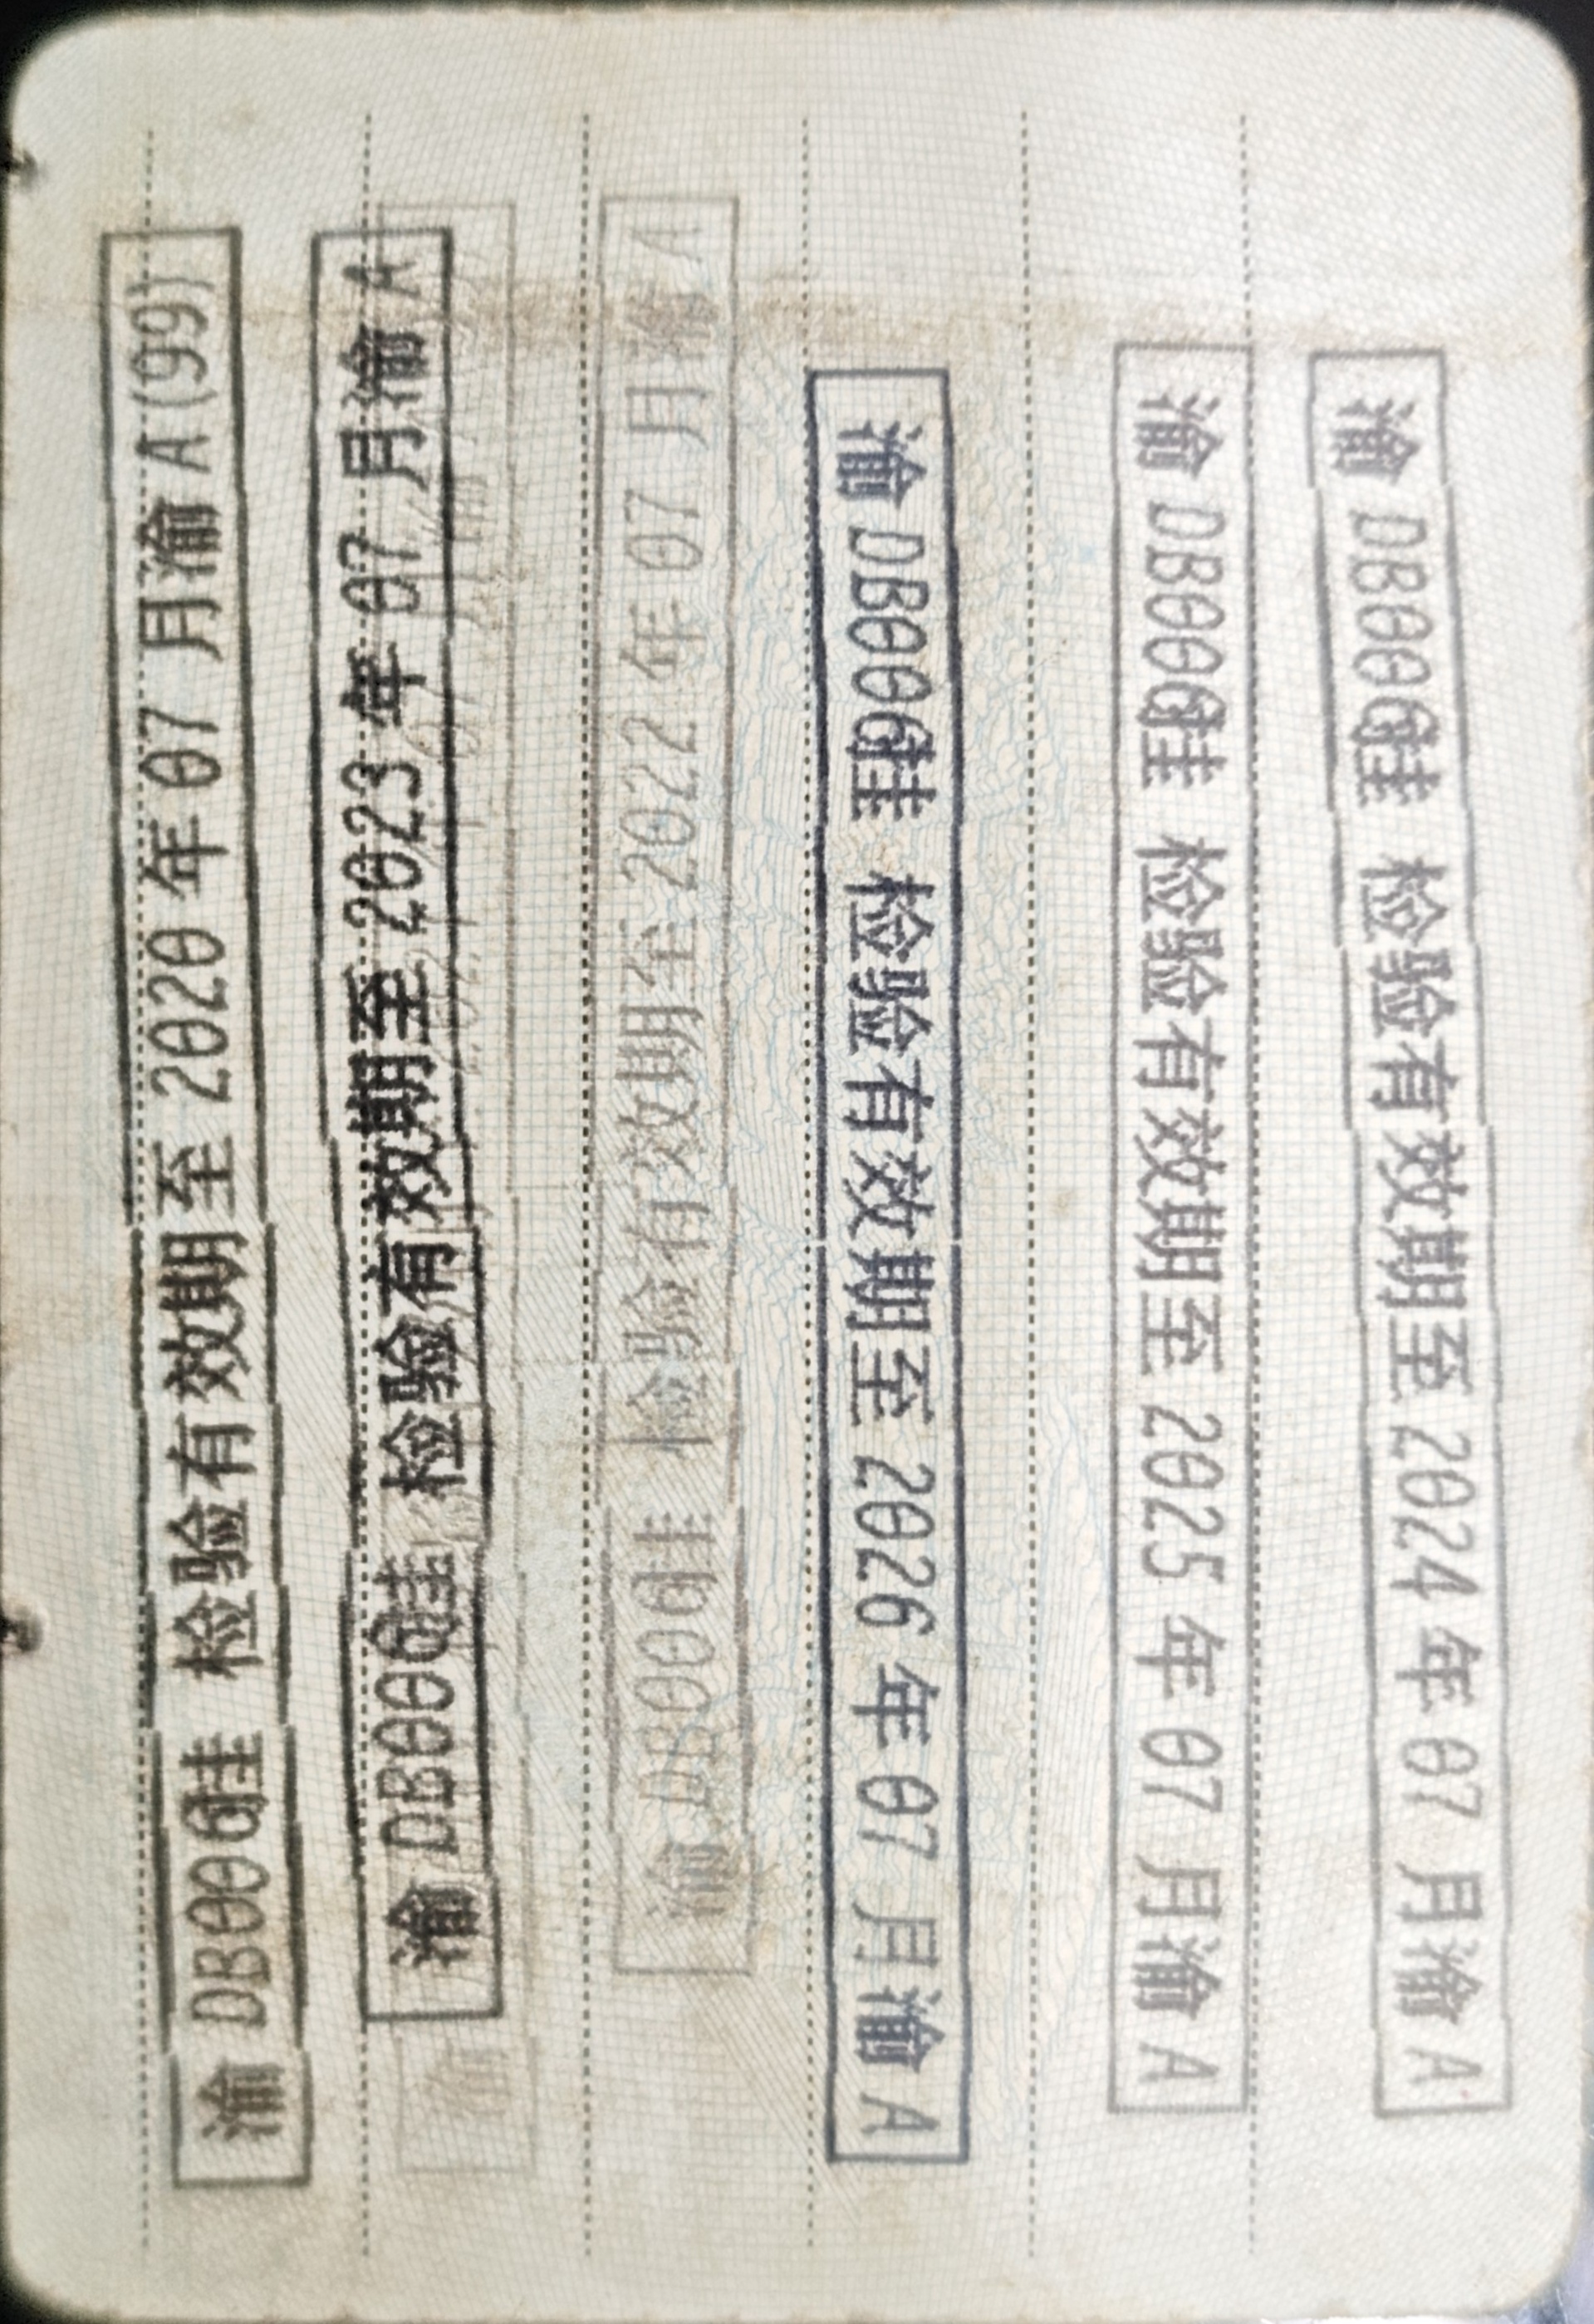 渝DB000挂 检验有效期至2020年07月渝A(99)
渝DB000挂 检验有效期至2023年07月渝A
渝DB000挂 检验有效期至2022年07月渝A
渝DB000挂 检验有效期至2026年07月渝A
渝DB000挂 检验有效期至2025年07月渝A
渝DB000挂 检验有效期至2024年07月渝A